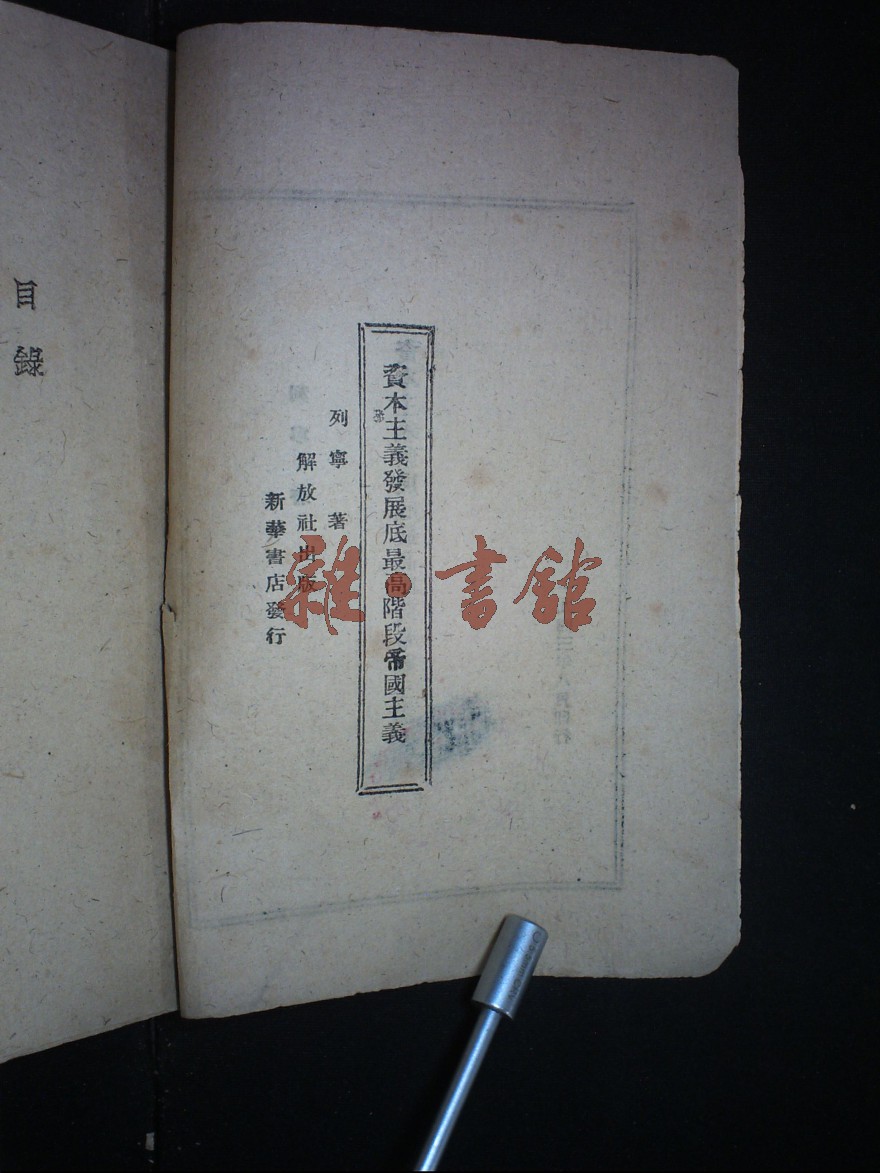 資本主義發展底最高階段帝國主義
列寧著
解放社出版
新華書店發行
目錄
雜·書館